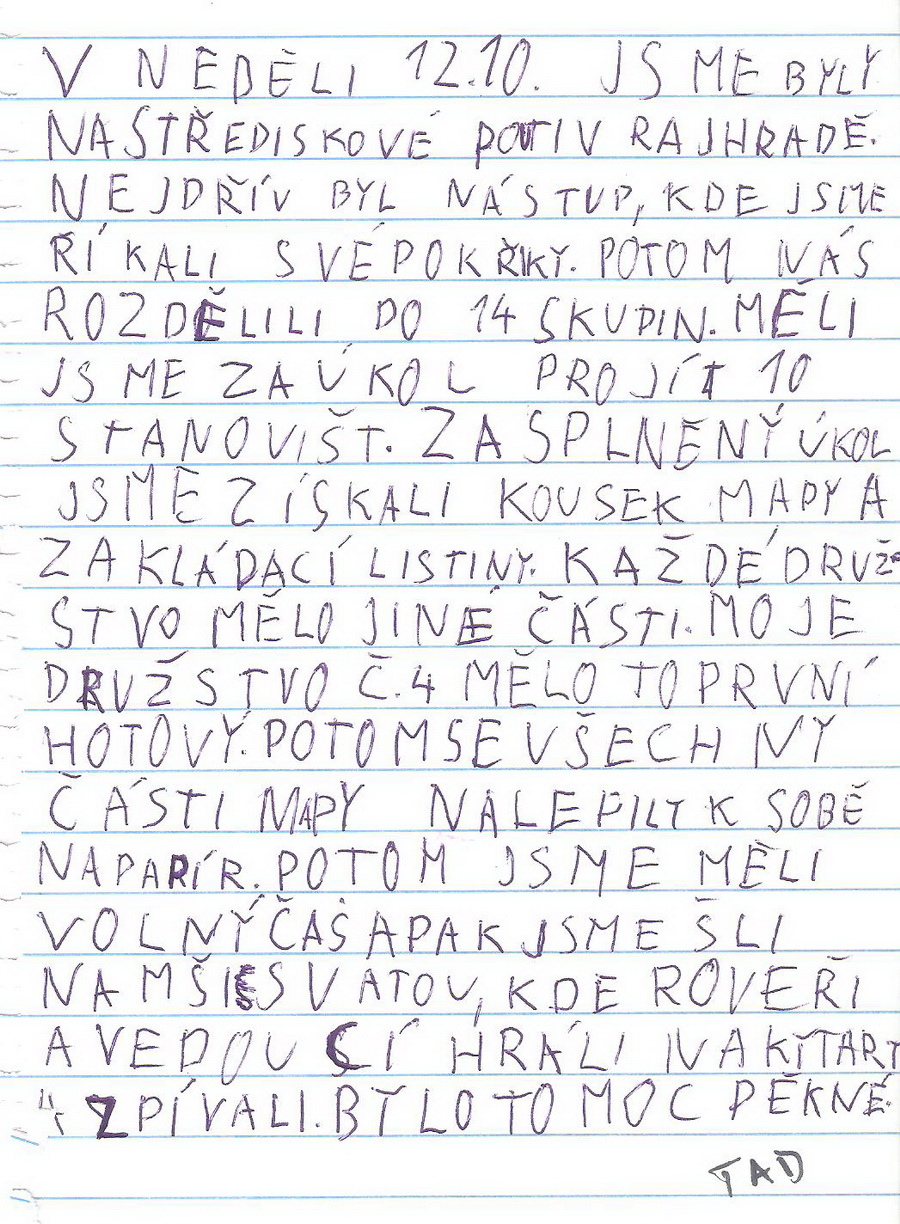 V NEDĚLI 12.10. JSME BYLY
NA STŘEDISKOVÉ POUTI V RAJHRADĚ.
NEJDŘÍV BYL NÁSTUP, KDE JSME
ŘÍKALI SVÉ POKŘIKY. POTOM NÁS
ROZDĚLILI DO 14 SKUPIN. MĚLI
JSME ZA ÚKOL PROJÍT 10
STANOVIŠT. ZA SPLNĚNÝ ÚKOL
JSME ZÍSKALI KOUSEK MAPY A
ZAKLÁDACÍ LISTINY. KAŽDÉ DRUŽ-
STVO MĚLO JINÉ ČÁSTI. MOJE
DRUŽSTVO Č.4 MĚLO TO PRVNÍ
HOTOVÝ. POTOM SE VŠECHNY
ČÁSTI MAPY NALEPILY K SOBĚ
NA PAPÍR. POTOM JSME MĚLI
VOLNÝ ČAS A PAK JSME ŠLI
NA MŠI SVATOU, KDE ROVEŘI
A VEDOUCÍ HRÁLI NA KYTARY
A ZPÍVALI. BYLO TO MOC PĚKNÉ.
TAD